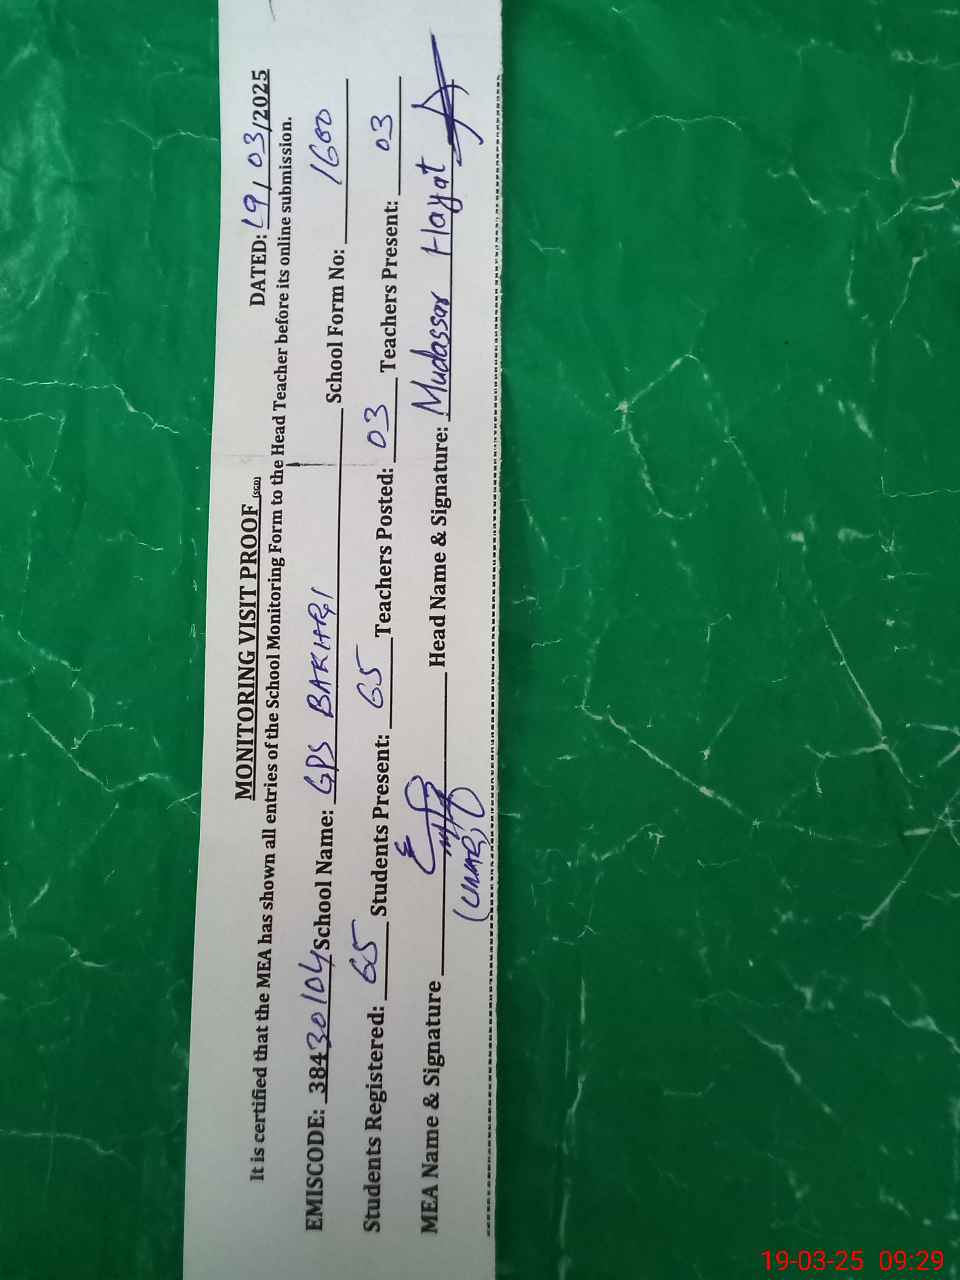 MONITORING VISIT PROOF (SGD) DATED: 19/03/2025
It is certified that the MEA has shown all entries of the School Monitoring Form to the Head Teacher before its online submission.
EMISCODE: 38430104 School Name: GPS BAKHRI School Form No: 1600
Students Registered: 65 Students Present: 65 Teachers Posted: 03 Teachers Present: 03
MEA Name & Signature Head Name & Signature: Mudassar Hayat
(UMAR)
19-03-25 09:29